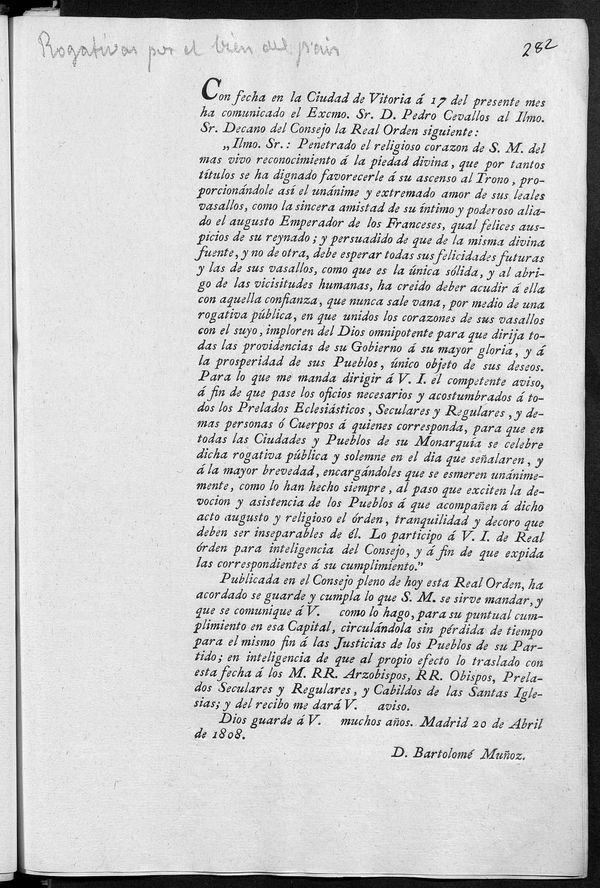 Rogativas por el bien del pais
282
Con fecha en la Ciudad de Vitoria á 17 del presente mes
ha comunicado el Excmo. Sr. D. Pedro Cevallos al Ilmo.
Sr. Decano del Consejo la Real Orden siguiente:
„Ilmo. Sr.: Penetrado el religioso corazon de S. M. del
mas vivo reconocimiento á la piedad divina, que por tantos
títulos se ha dignado favorecerle á su ascenso al Trono, pro-
porcionándole así el unánime y extremado amor de sus leales
vasallos, como la sincera amistad de su íntimo y poderoso alia-
do el augusto Emperador de los Franceses, qual felices aus-
picios de su reynado; y persuadido de que de la misma divina
fuente, y no de otra, debe esperar todas sus felicidades futuras
y las de sus vasallos, como que es la única sólida, y al abri-
go de las vicisitudes humanas, ha creido deber acudir á ella
con aquella confianza, que nunca sale vana, por medio de una
rogativa pública, en que unidos los corazones de sus vasallos
con el suyo, imploren del Dios omnipotente para que dirija to-
das las providencias de su Gobierno á su mayor gloria, y á
la prosperidad de sus Pueblos, único objeto de sus deseos.
Para lo que me manda dirigir á V. I. el competente aviso,
á fin de que pase los oficios necesarios y acostumbrados á to-
dos los Prelados Eclesiásticos, Seculares y Regulares, y de-
mas personas ó Cuerpos á quienes corresponda, para que en
todas las Ciudades y Pueblos de su Monarquía se celebre
dicha rogativa pública y solemne en el dia que señalaren, y
á la mayor brevedad, encargándoles que se esmeren unánime-
mente, como lo han hecho siempre, al paso que exciten la de-
vocion y asistencia de los Pueblos á que acompañen á dicho
acto augusto y religioso el órden, tranquilidad y decoro que
deben ser inseparables de él. Lo participo á V. I. de Real
órden para inteligencia del Consejo, y á fin de que expida
las correspondientes á su cumplimiento."
Publicada en el Consejo pleno de hoy esta Real Orden, ha
acordado se guarde y cumpla lo que S. M. se sirve mandar, y
que se comunique á V. como lo hago, para su puntual cum-
plimiento en esa Capital, circulándola sin pérdida de tiempo
para el mismo fin á las Justicias de los Pueblos de su Par-
tido; en inteligencia de que al propio efecto lo traslado con
esta fecha á los M. RR. Arzobispos, RR. Obispos, Prela-
dos Seculares y Regulares, y Cabildos de las Santas Igle-
sias; y del recibo me dará V. aviso.
Dios guarde á V. muchos años. Madrid 20 de Abril
de 1808.
D. Bartolomé Muñoz.